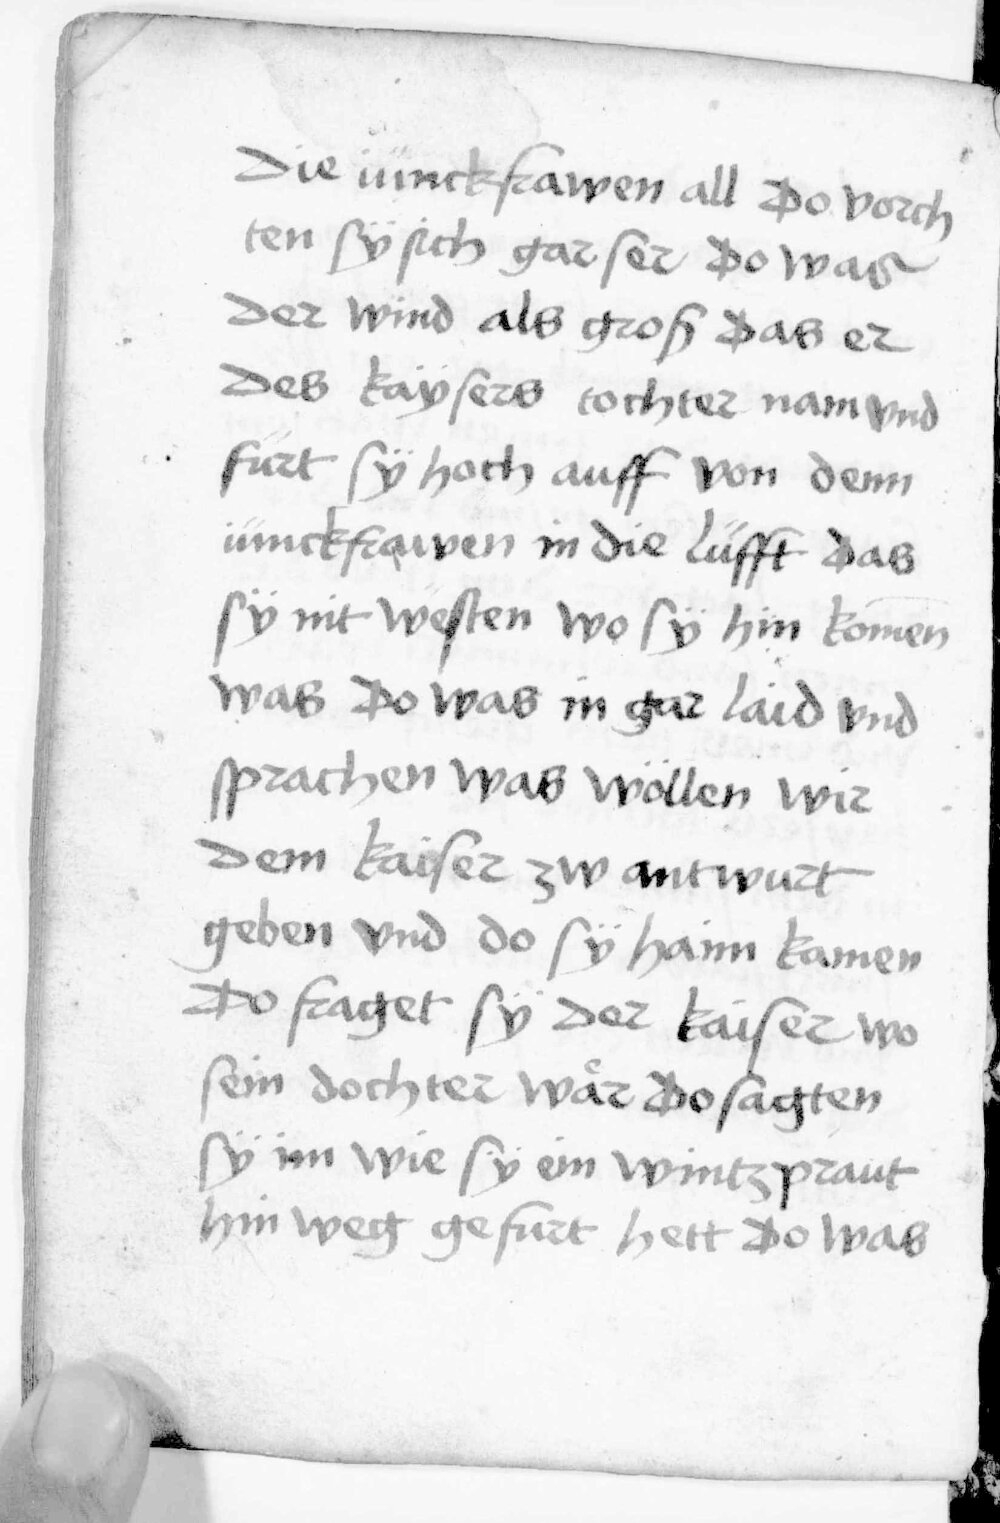 Die iünckfrawen all Do vorch
ten sÿ sich gar ser Do was
der wind als groß Das er
des kaÿsers tochter nam vnd
fürt sÿ hoch auff von denn
iünckfrawen in die lüfft Das
sÿ nit westen wo sÿ hin komen
was Do was in gar laid vnd
sprachen was wöllen wir
dem kaiser zw antwurt
geben vnd do sÿ haim kamen
Do fraget sÿ der kaiser wo
sein dochter wär Do sagten
sÿ im wie sÿ ein wintzpraut
hin weg gefürt hett Do was